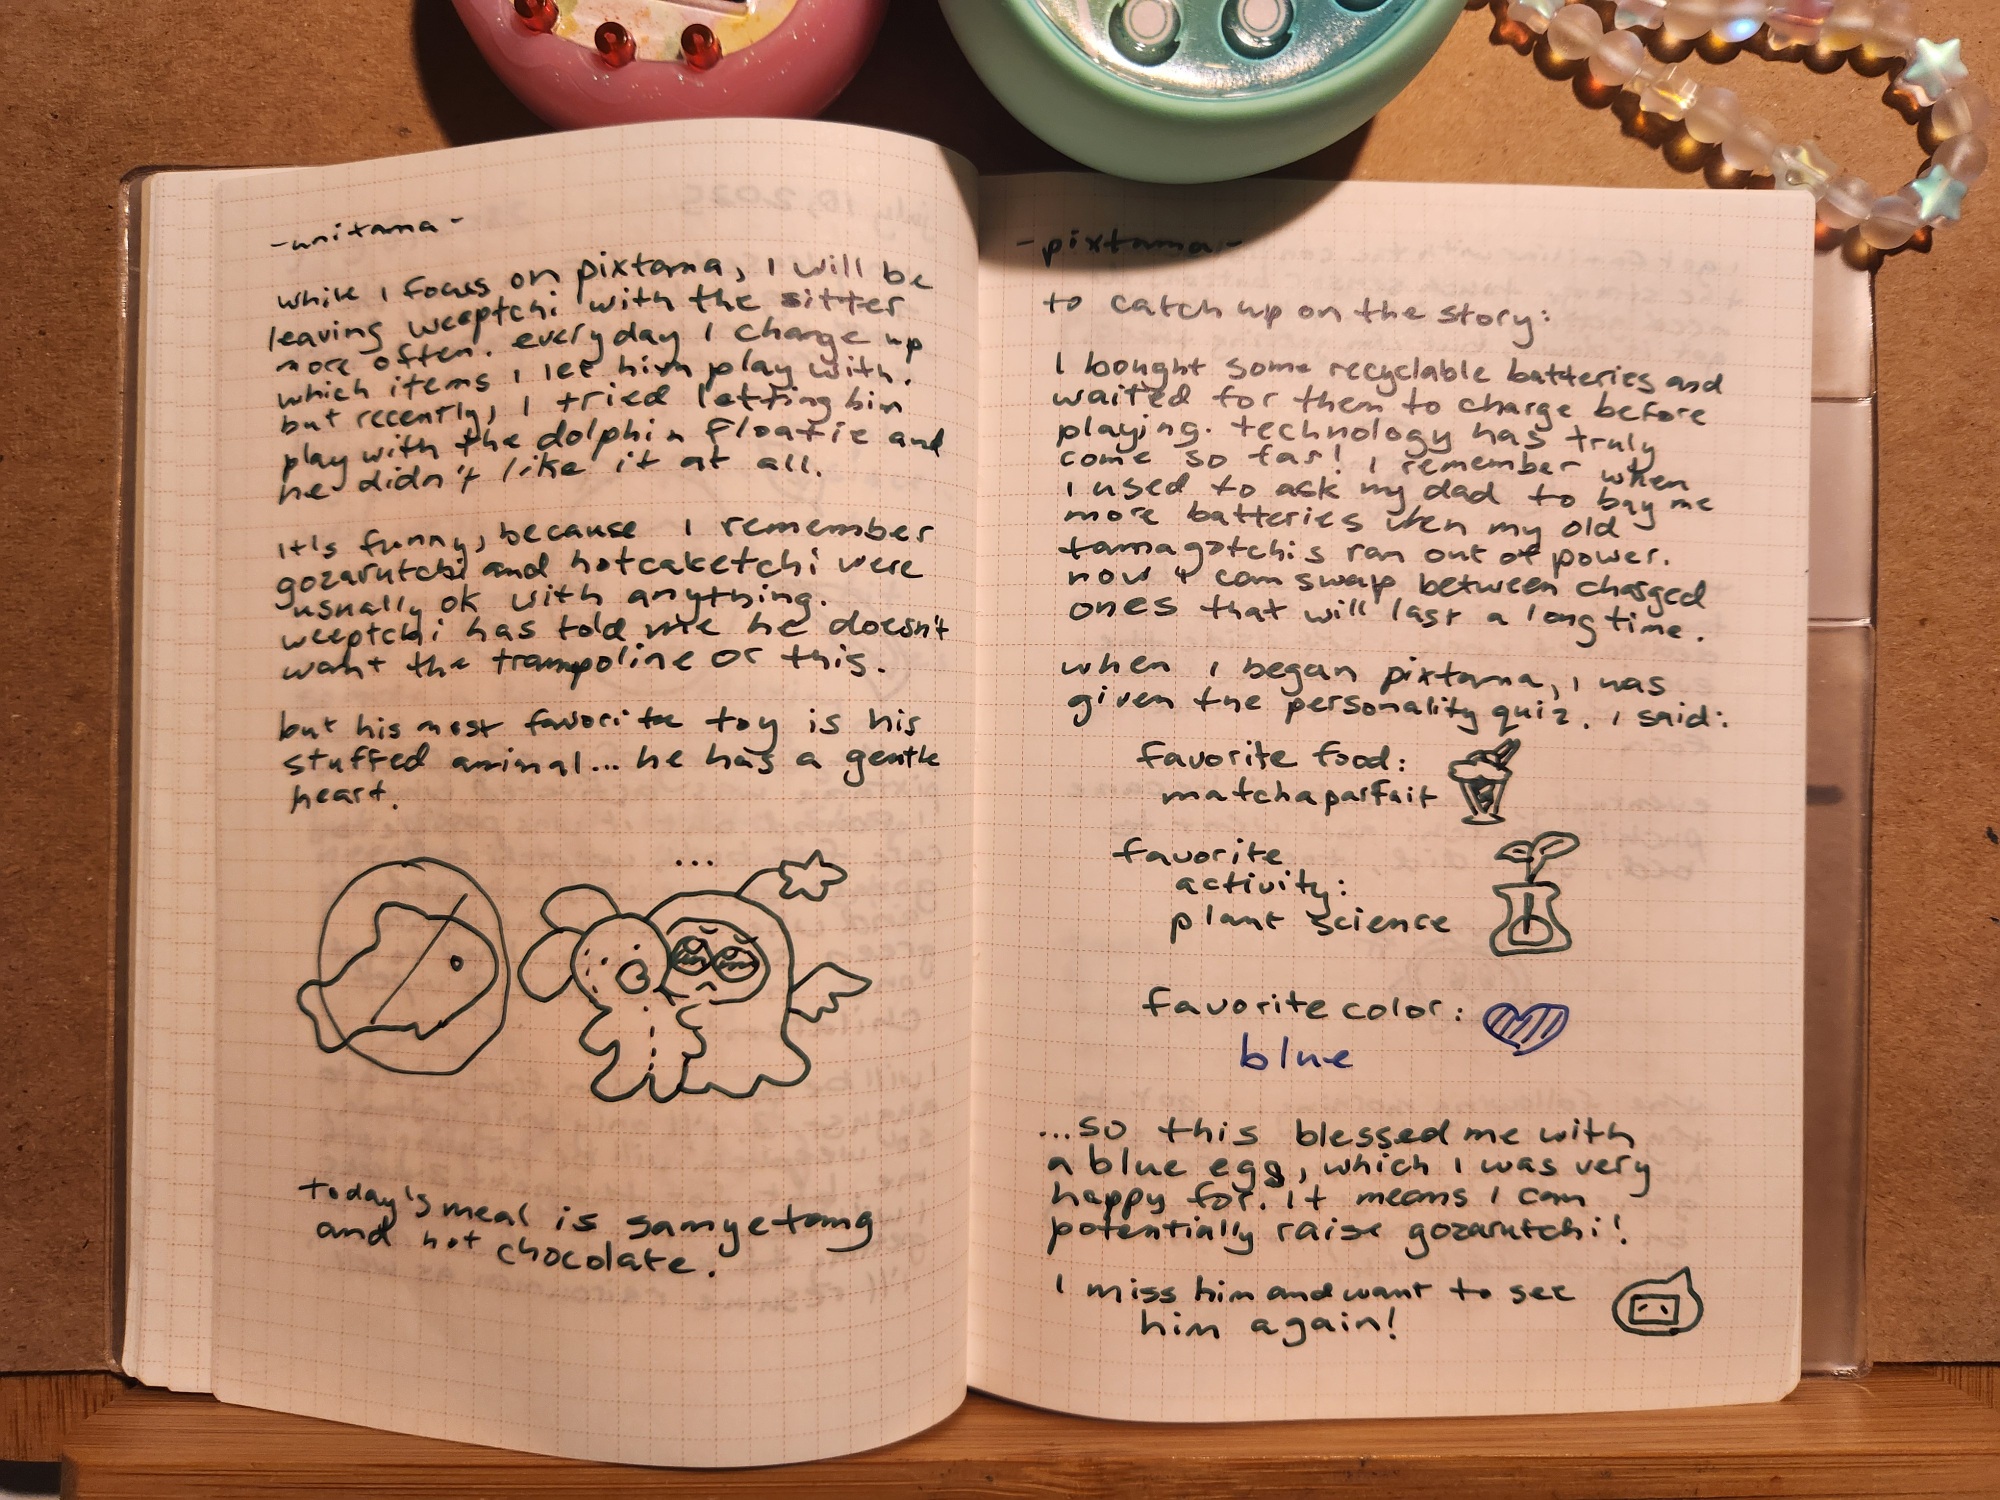 -unitama-
while i focus on pixtama, i will be
leaving weeptchi with the sitter
more often. everyday i change up
which items i let him play with.
but recently, i tried letting him
play with the dolphin floatie and
he didn't like it at all.
it's funny, because i remember
gozarutchi and hotcaketchi were
usually ok with anything.
weeptchi has told me he doesn't
want the trampoline or this.
but his most favorite toy is his
stuffed animal... he has a gentle
heart.
...
today's meal is samgyetang
and hot chocolate.
-pixtama-
to catch up on the story:
i bought some recyclable batteries and
waited for them to charge before
playing. technology has truly
come so far! i remember when
i used to ask my dad to buy me
more batteries when my old
tamagotchis ran out of power.
now i can swap between charged
ones that will last a long time.
when i began pixtama, i was
given the personality quiz. i said:
favorite food:
matcha parfait
favorite
activity:
plant science
favorite color:
blue
...so this blessed me with
a blue egg, which i was very
happy for. it means i can
potentially raise gozarutchi!
i miss him and want to see
him again!